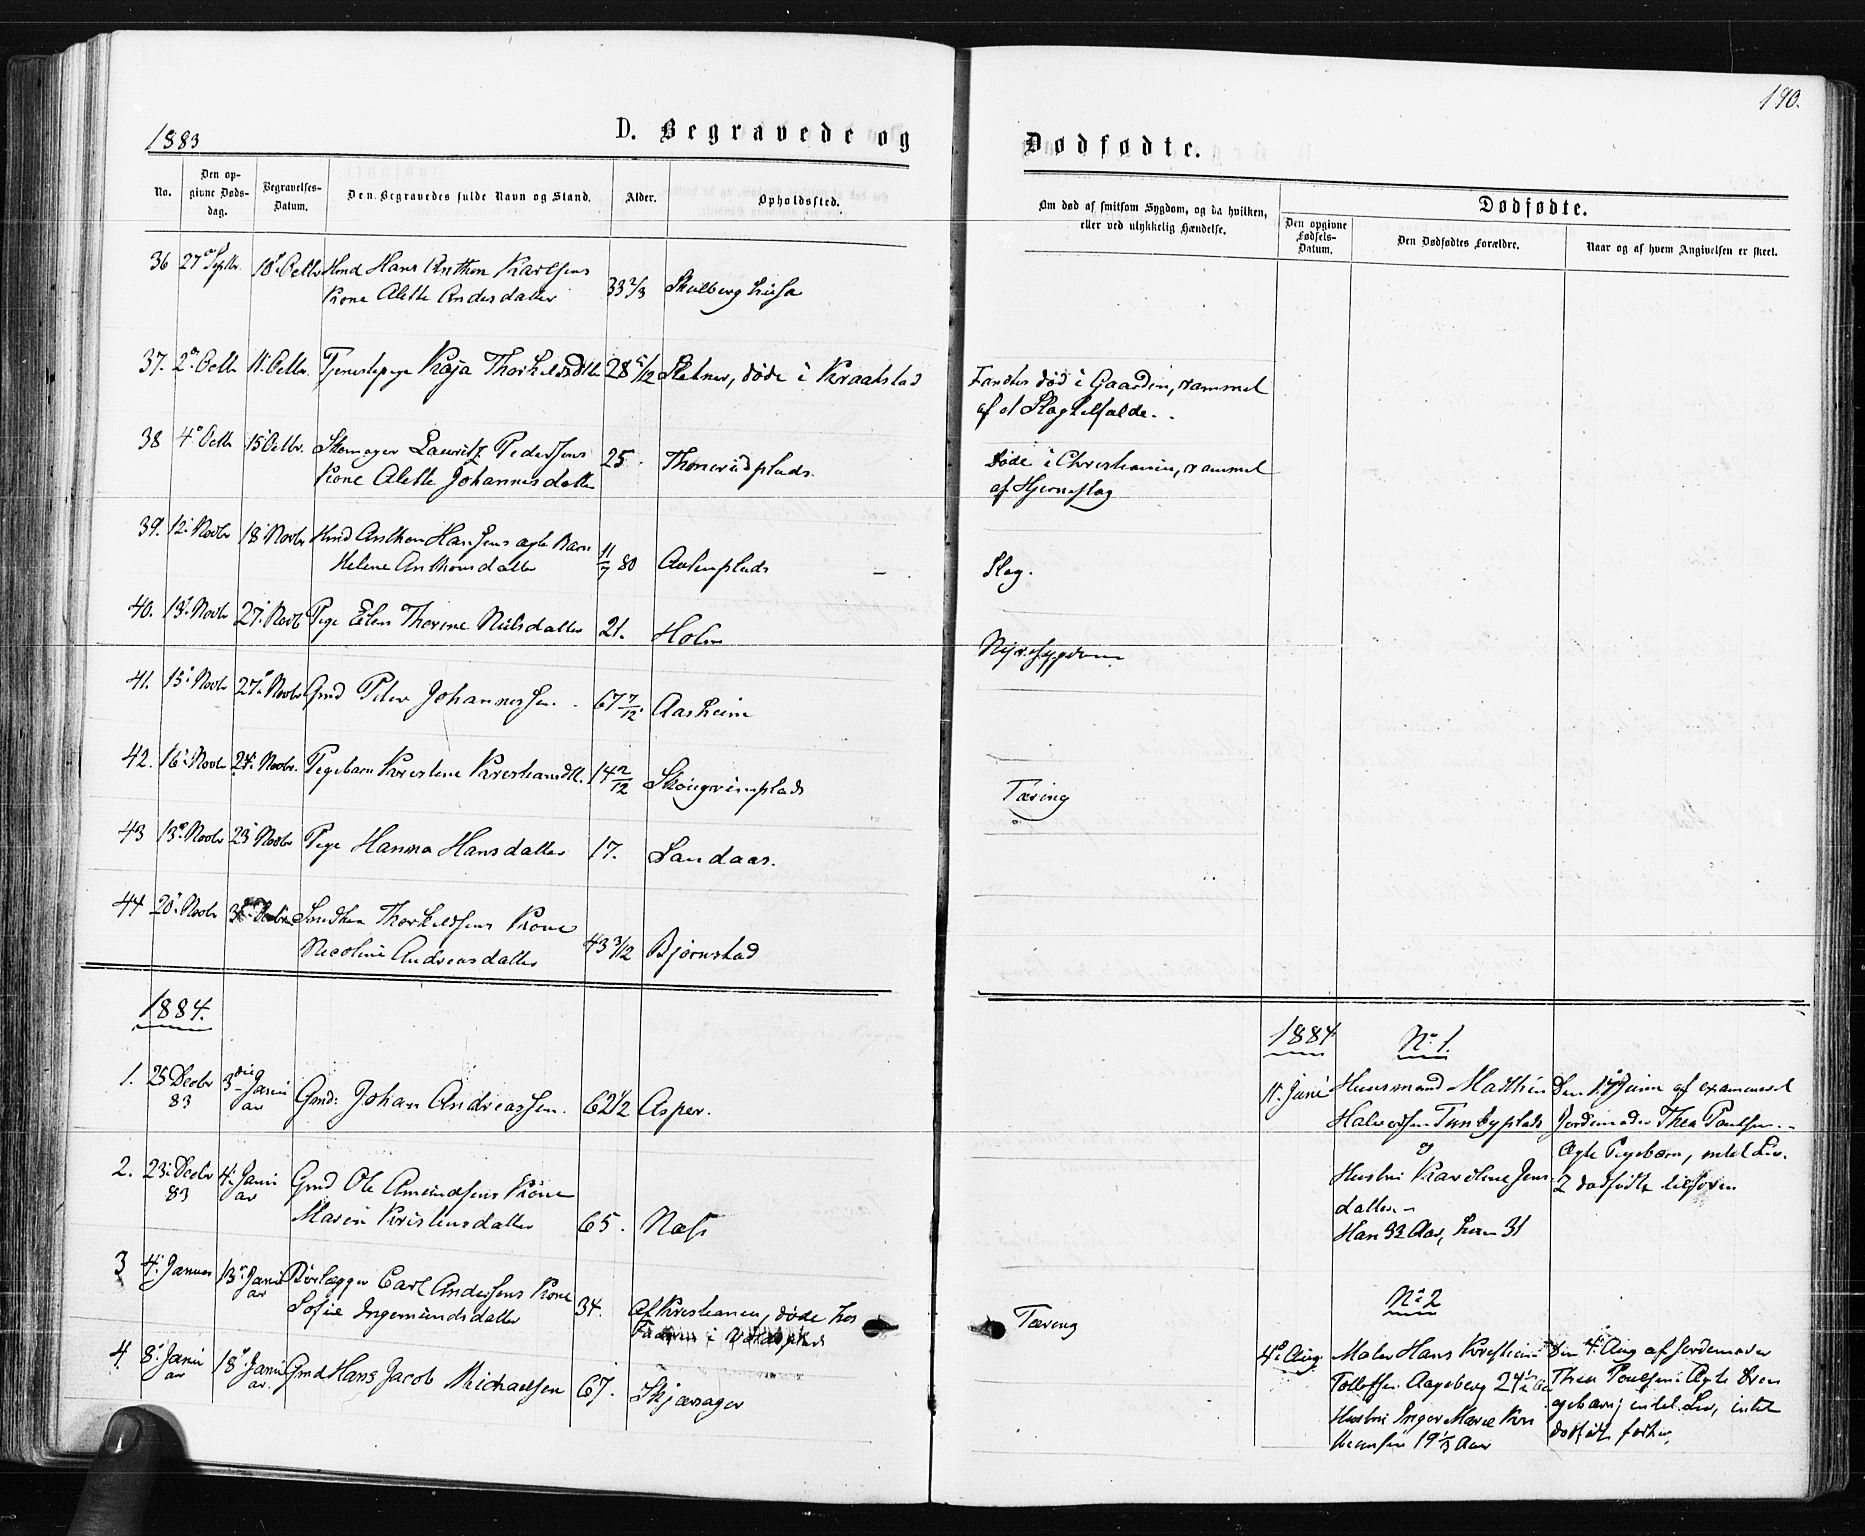 190.
1883
D. Begravede og
Dødfødte.
No.
Den opgivne Dødsdag.
Begravelses-Datum.
Den Begravedes fulde Navn og Stand.
Alder.
Opholdssted.
Om død af smitsom Sygdom, og da hvilken,
eller ved ulykkelig Hændelse.
Dødfødte.
Den opgivne Fødsels-Datum.
Den Dødfødtes Forældre.
Naar og af hvem Angivelsen er skeet.
36 27 Septbr. 10 Octbr Hans Anthon Karlsens
Kone Alette Andersdatter 33 2/3 Skulberg
37. 2 Octbr 11 Octbr. Tjenestepige Kaja 28 5/12 døde i Kraakstad
død i Gaarden, rammet
af et
38 4 Octbr 15 Octbr. Skomager Lauritz Pedersens
Kone Alette Johannesdatter 25. Thonerudplads.
Døde i Christiania, rammet
af Hjerneslag
39. 12. Novbr 18 Novbr Anthon Hansens ægte Barn
Helene Anthonsdatter 11/7 80
Slag.
40. 13. Novbr 27. Novb Pige Thorine Nielsdatter 21. Holm
Nyresygdom
41. 15. Novbr 27. Novbr Gmd Peter Johannessen. 67 7/12 Aasheim
42. 16. Novbr 24. Novbr. Pigebarn Kristine 14 2/12
Tæring
43 13. Novbr 23 Novbr Pige Hanna Hansdatter 17. Sandaas.
44 20. Novbr Thorkildsens Kone
Nicoline Andreasdatter 43 3/12 Bjørnstad
1884.
1. 25 Decbr 83 3die Januar Gmd: Johan Andreassen. 62 1/2 Asper.
2. 23. Decbr 83 4. Januar Gmd Ole Amundsens Kone
Maren Kristensdatter 65. Næss
3 4. Januar 13. Januar Carl Andersens Kone
Sofie Ingemundsdatter 34. Af Kristiania, døde hos
Faderen i
Tæring
4. 8. Januar 18. Januar Gmd Hans Jacob Michaelsen 67. Skjærsager
1884
No 1.
11. Juni Huusmand Mathias
Halvorsen Tunbyplads
og
Hustru Karoline Jens
datter
Han 32 Aar, hun 31
Den 17 Juni af examineret
Jordemoder Thea Paulsen.
Ægte Pigebarn, intet Liv.
2 dødfødte tilforen
No 2
4. Aug Maler Hans Kristian
Tollefsen Aageberg 24 1/2 Aar
Hustru Inger Marie Kris
tiansen 19 1/3 Aar
Den 4. Aug af Jordemoder
Thea Poulsen: Ægte Dren
gebarn; intet Liv, intet
dødfødt forhen.